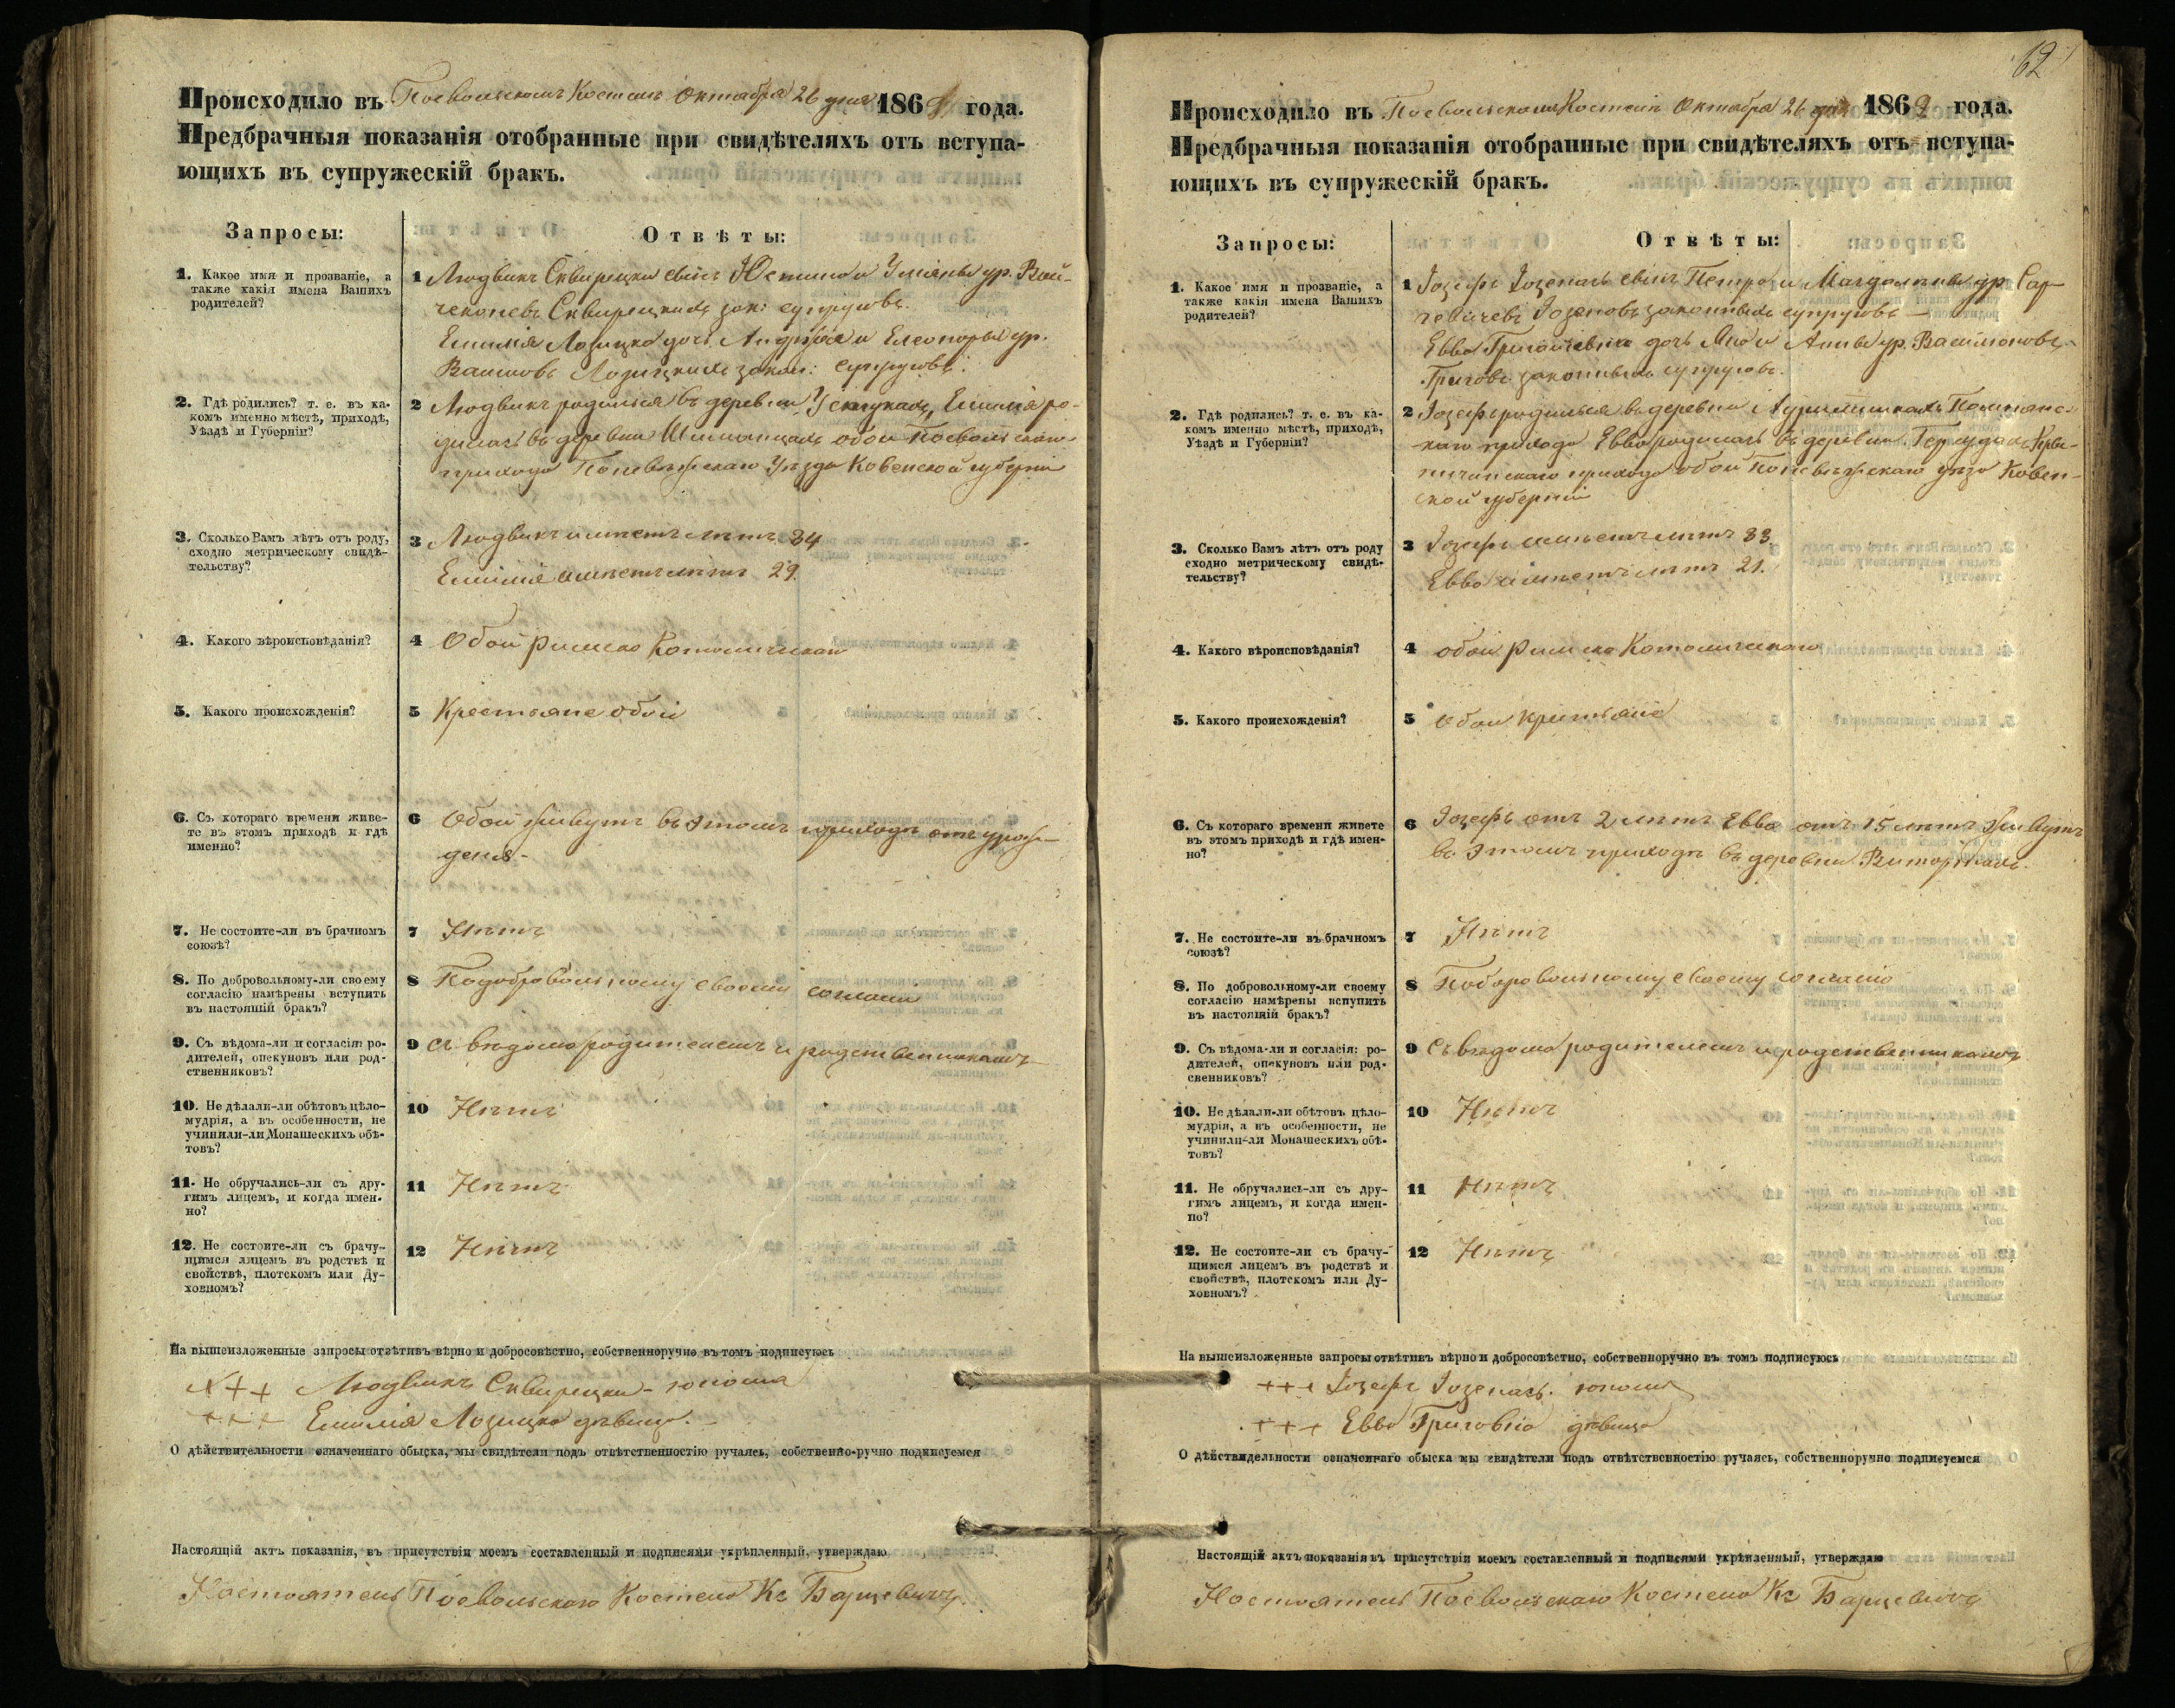 Происходило въ Поевольскомъ Костелѣ Октября 26 дня 186 года.
Предбрачныя показанія отобранные при свидѣтеляхъ отъ вступа-
ющихъ въ супружескій бракъ.
Запросы:
Отвѣты:
1. Какое имя и прозваніе, а
также какія имена Вашихъ
родителей?
1 Людвикъ Сквирецки сынъ Юстина и ур. Вай-
Сквирецкихъ зак: супруговъ.
Емилія Лозицка дочь Андрея и Елеоноры ур.
Лозицкихъ закон: супруговъ.
2. Гдѣ родились? т. е. въ ка-
комъ именно мѣстѣ, приходѣ,
Уѣздѣ и Губерніи?
2 Людвикъ родился въ деревни Емилія ро-
дилась въ деревни обои Поевольскаго
прихода Поневѣжскаго Уѣзда Ковенской губерніи
3. Сколько Вамъ лѣтъ отъ роду,
сходно метрическому свидѣ-
тельству?
3 Людвикъ имѣетъ лѣтъ 34
Емилія имѣетъ лѣтъ 29.
4. Какого вѣроисповѣданія?
4 Обои Римско Католическаго
5. Какого происхожденія?
5 Крестьяне обои
6. Съ котораго времени живе-
те въ этомъ приходѣ и гдѣ
именно?
6 Обои живутъ въ этомъ приходѣ отъ урож-
денія-
7. Не состоите-ли въ брачномъ
союзѣ?
7 Нѣтъ
8. По добровольному-ли своему
согласію намѣрены вступить
въ настоящій бракъ?
8 Подобровольному своему согласи
9. Съ вѣдома-ли и согласія: ро-
дителей, опекуновъ или род-
ственниковъ?
9 Съ вѣдома родителемъ и родственникамъ
10. Не дѣлали-ли обѣтовъ цѣло-
мудрія, а въ особенности, не
учинили-ли Монашескихъ обѣ-
товъ?
10 Нѣтъ
11. Не обручались-ли съ дру-
гимъ лицемъ, и когда имен-
но?
11 Нѣтъ
12. Не состоите-ли съ брачу-
щимся лицемъ въ родствѣ и
свойствѣ, плотскомъ или Ду-
ховномъ?
12 Нѣтъ
На вышеизложенные запросы отвѣтивъ вѣрно и добросовѣстно, собственноручно въ томъ подписуюсь
+++ Людвикъ Сквирецки - юноша
+++ Емилія Лозицка дѣвица. -
О дѣйствительности означеннаго обыска, мы свидѣтели подъ отвѣтственностію ручаясь, собственно-ручно подписуемся
Настоящій актъ показанія, въ присутствіи моемъ составленный и подписями укрѣпленный, утверждаю
Настоятель Поевольскаго Костела Кс Барцевичъ
62
Происходило въ Поевольскомъ Костелѣ Октября 26 дня 186 года.
Предбрачныя показанія отобранные при свидѣтеляхъ отъ вступа-
ющихъ въ супружескій бракъ.
Запросы:
Отвѣты:
1. Какое имя и прозваніе, а
также какія имена Вашихъ
родителей?
1 Іозефъ Іозенасъ сынъ Петра и Магдалины ур.
законныхъ супруговъ -
Евва дочь и Анны ур.
законныхъ супруговъ.
2. Гдѣ родились? т. е. въ ка-
комъ именно мѣстѣ, приходѣ,
Уѣздѣ и Губерніи?
2 Іозефъ родился въ деревни
прихода Евва родилась въ деревни
прихода обои Поневѣжскаго уѣзда Ковен-
ской губерніи
3. Сколько Вамъ лѣтъ отъ роду
сходно метрическому свидѣ-
тельству?
3 Іозефъ имѣетъ лѣтъ 33.
Евва имѣетъ лѣтъ 21.
4. Какого вѣроисповѣданія?
4 обои Римско Католическаго
5. Какого происхожденія?
5 Обои
6. Съ котораго времени живете
въ этомъ приходѣ и гдѣ имен-
но?
6 Іозефъ отъ 2 лѣтъ Евва отъ 15 лѣтъ живутъ
въ этомъ приходѣ въ деревни
7. Не состоите-ли въ брачномъ
союзѣ?
7 Нѣтъ
8. По добровольному-ли своему
согласію намѣрены вспупить
въ настоящій бракъ?
8 своему согласію
9. Съ вѣдома-ли и согласія: ро-
дителей, опекуновъ или род-
свенниковъ?
9 Съ вѣдома родителемъ и родственникамъ
10. Не дѣлали-ли обѣтовъ цѣло-
мудрія, а въ особенности, не
учинили-ли Монашескихъ обѣ-
товъ?
10 Нѣтъ
11. Не обручались-ли съ дру-
гимъ лицемъ, и когда имен-
но?
11 Нѣтъ
12. Не состоите-ли съ брачу-
щимся лицемъ въ родствѣ и
свойствѣ, плотскомъ или Ду-
ховномъ?
12 Нѣтъ
На вышеизложенные запросы отвѣтивъ вѣрно и добросовѣстно, собственноручно въ томъ подписуюсь
+++ Іозефъ Іозенасъ. юноша
+++ Евва дѣвица
О дѣйствидельности означеннаго обыска мы свидѣтели подъ отвѣтственностію ручаясь, собственноручно подписуемся
Настоящій актъ показанія въ присутствіи моемъ составленный и подписями укрѣпленный, утверждаю
Настоятель Поевольскаго Костела Кс Барцевичъ